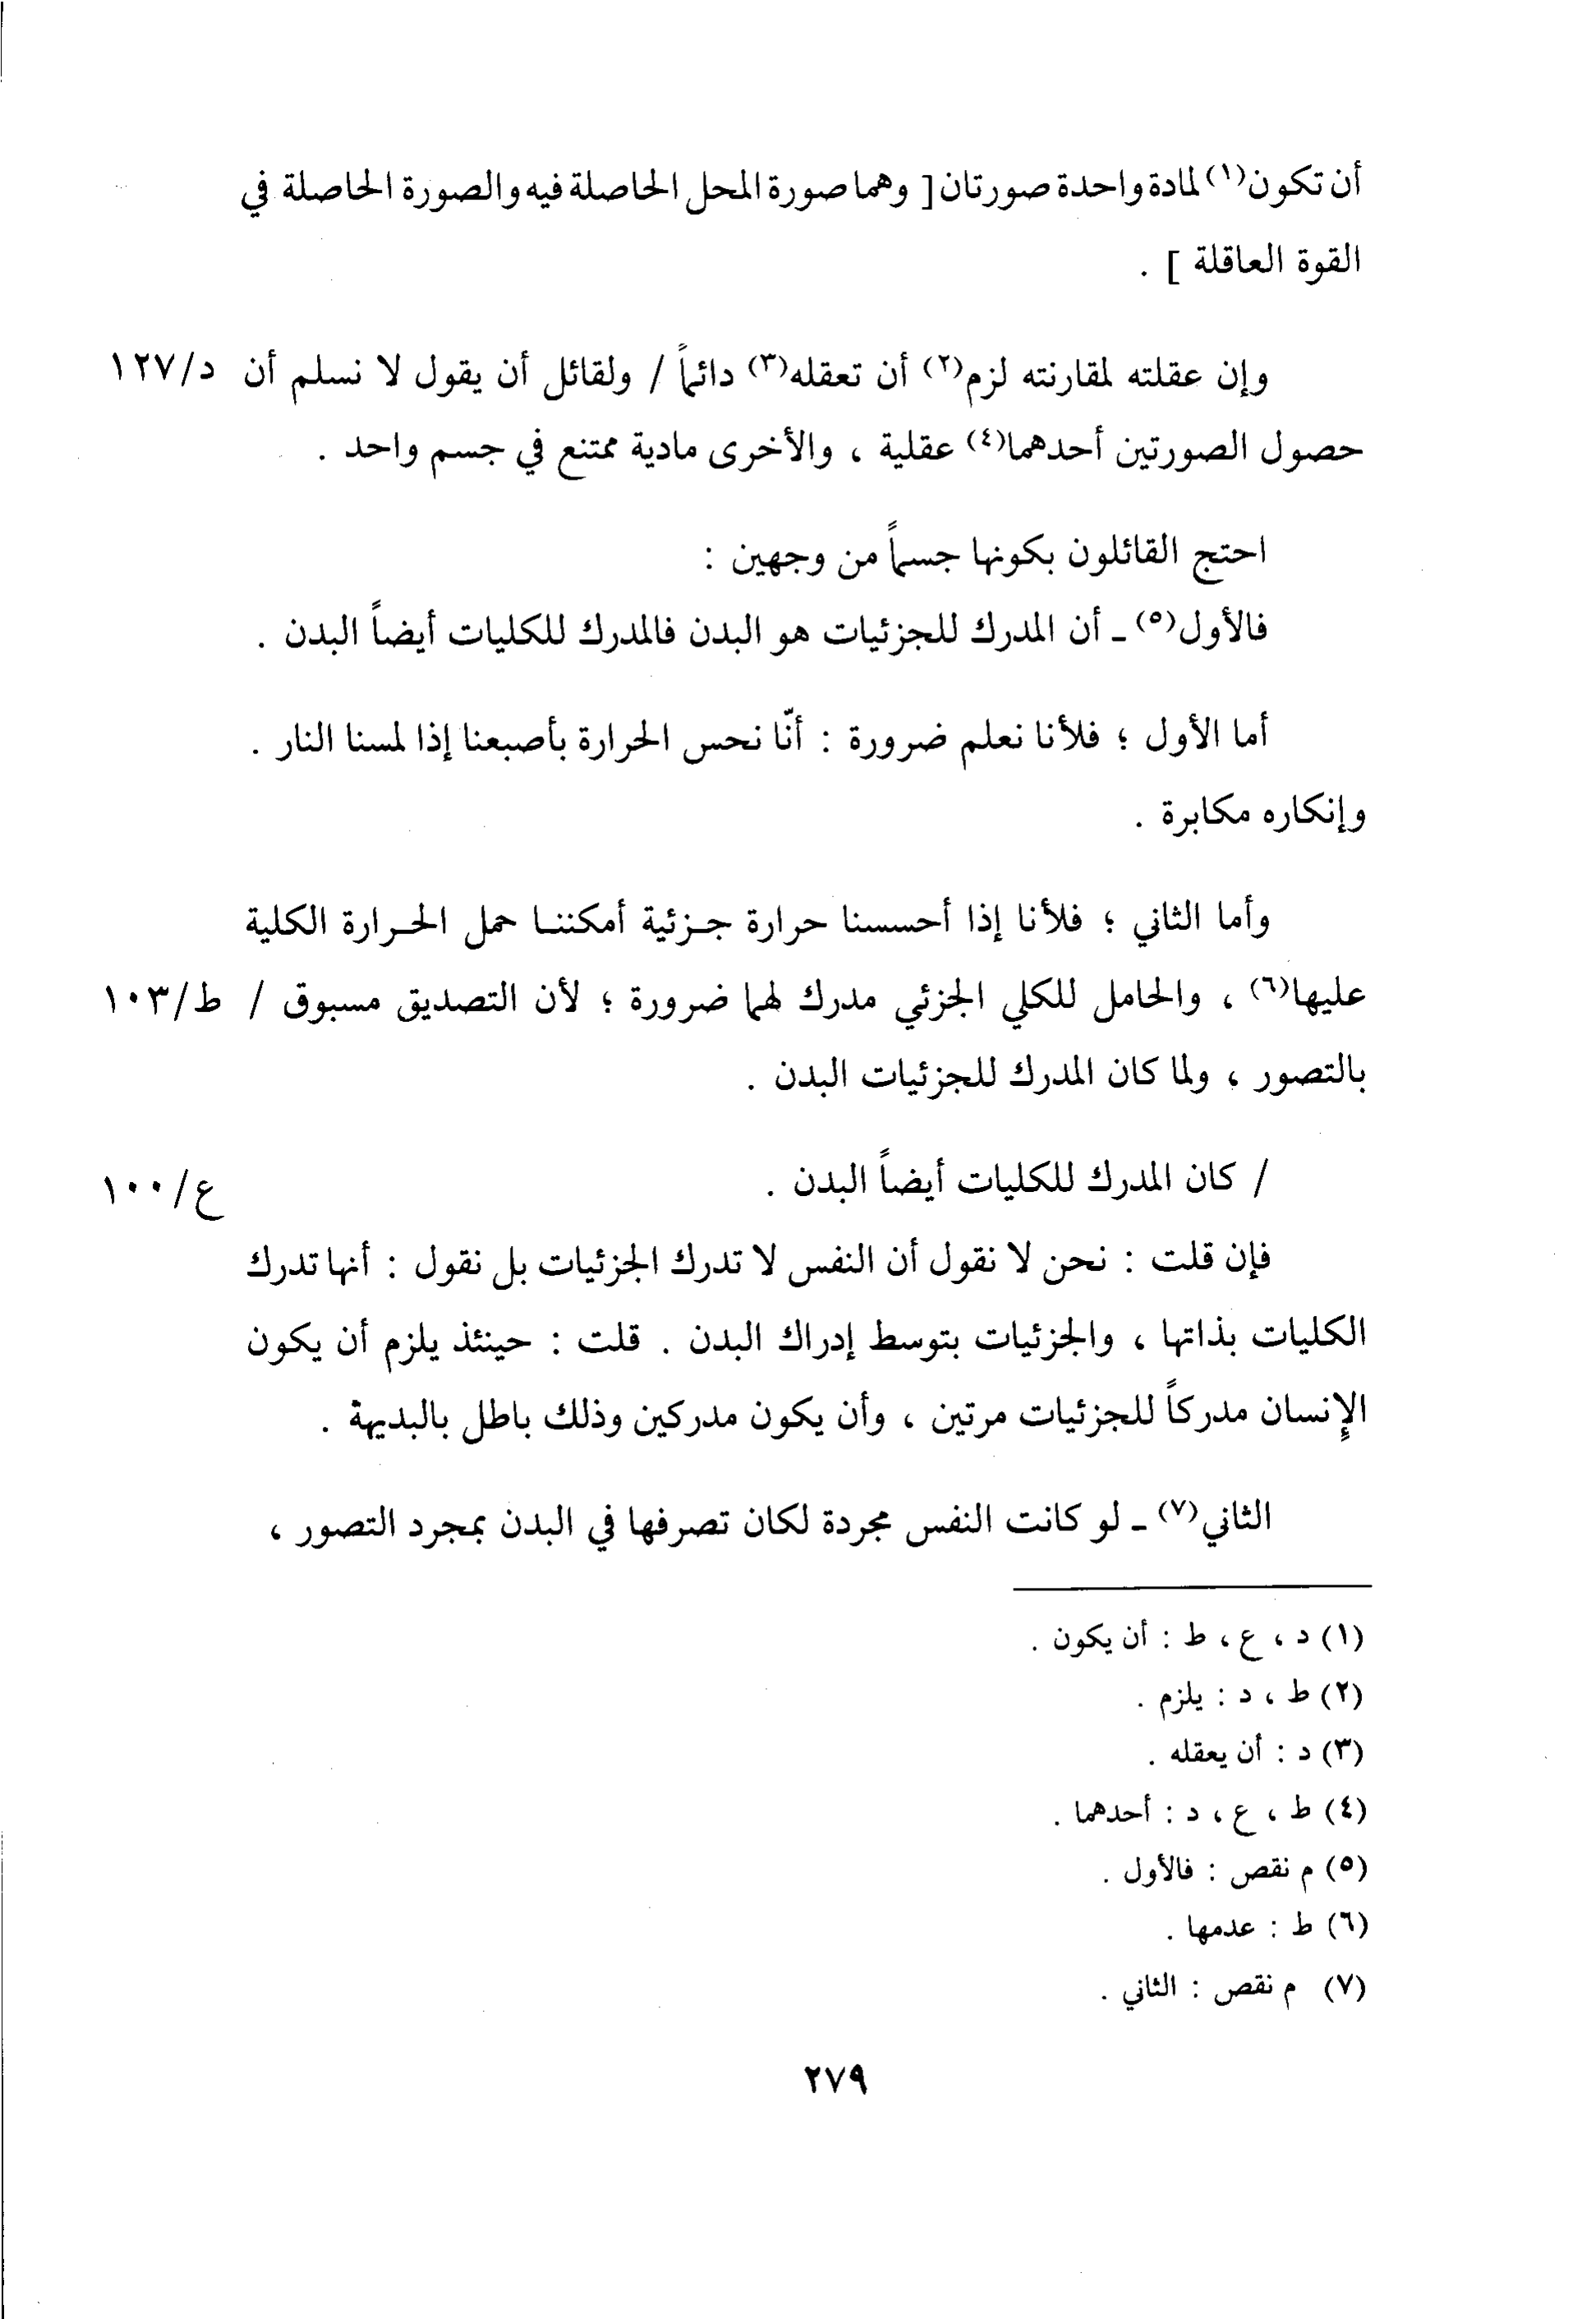 أن تكون(١) لمادة واحدة صورتان [ وهما صورة المحل الحاصلة فيه والصورة الحاصلة في
القوة العاقلة ] .
وإن عقلته لمقارنته لزم(٢) أن تعقله(٣) دائماً / ولقائل أن يقول لا نسلم أن د/١٢٧
حصول الصورتين أحدهما(٤) عقلية ، والأخرى مادية ممتنع في جسم واحد .
احتج القائلون بكونها جسماً من وجهين :
فالأول(٥) ـ أن المدرك للجزئيات هو البدن فالمدرك للكليات أيضاً البدن .
أما الأول ؛ فلأنا نعلم ضرورة : أنّا نحس الحرارة بأصبعنا إذا لمسنا النار .
وإنكاره مكابرة .
وأما الثاني ؛ فلأنا إذا أحسسنا حرارة جـزئية أمكننـا حمل الحـرارة الكلية
عليها(٦) ، والحامل للكلي الجزئي مدرك لهما ضرورة ؛ لأن التصديق مسبوق / ط/١٠٣
بالتصور ، ولما كان المدرك للجزئيات البدن .
/ كان المدرك للكليات أيضاً البدن . ع/١٠٠
فإن قلت : نحن لا نقول أن النفس لا تدرك الجزئيات بل نقول : أنها تدرك
الكليات بذاتها ، والجزئيات بتوسط إدراك البدن . قلت : حينئذ يلزم أن يكون
الإنسان مدركاً للجزئيات مرتين ، وأن يكون مدركين وذلك باطل بالبديهة .
الثاني(٧) ـ لو كانت النفس مجردة لكان تصرفها في البدن بمجرد التصور ،
(١) د ، ع ، ط : أن يكون .
(٢) ط ، د : يلزم .
(٣) د : أن يعقله .
(٤) ط ، ع ، د : أحدهما .
(٥) م نقص : فالأول .
(٦) ط : عدمها .
(٧) م نقص : الثاني .
٢٧٩